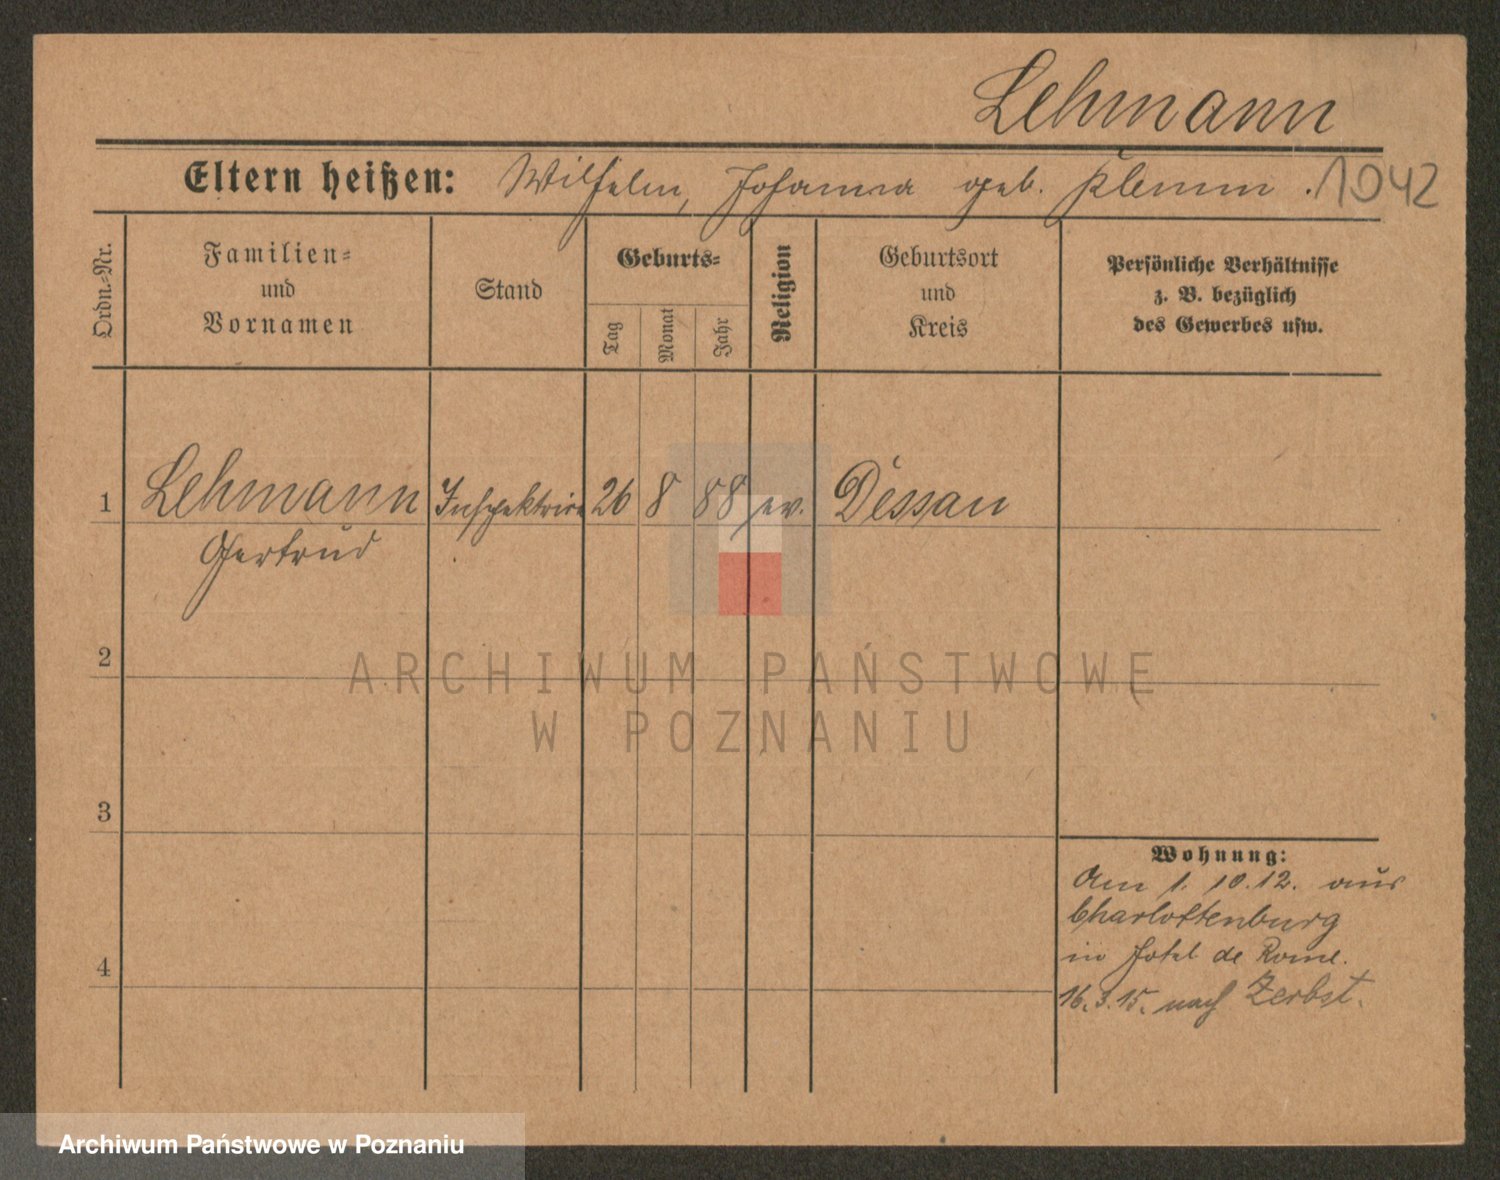 Lehmann
Eltern heißen: Wilhelm, Johanna geb. Klemm. 1042
Ordn.-Nr.
Familien-
und
Vornamen
Stand
Geburts-
Tag
Monat
Jahr
Religion
Geburtsort
und
Kreis
Persönliche Verhältnisse
z. B. bezüglich
des Gewerbes usw.
1 Lehmann Inspektrice 26 8 88 ev. Dessau
Gertrud
2
ARCHIWUM PAŃSTWOWE
W POZNANIU
3
Wohnung:
Am 1. 10. 12. aus
Charlottenburg
in Hotel de Rome.
4
16. 3. 15. nach Zerbst.
Archiwum Państwowe w Poznaniu